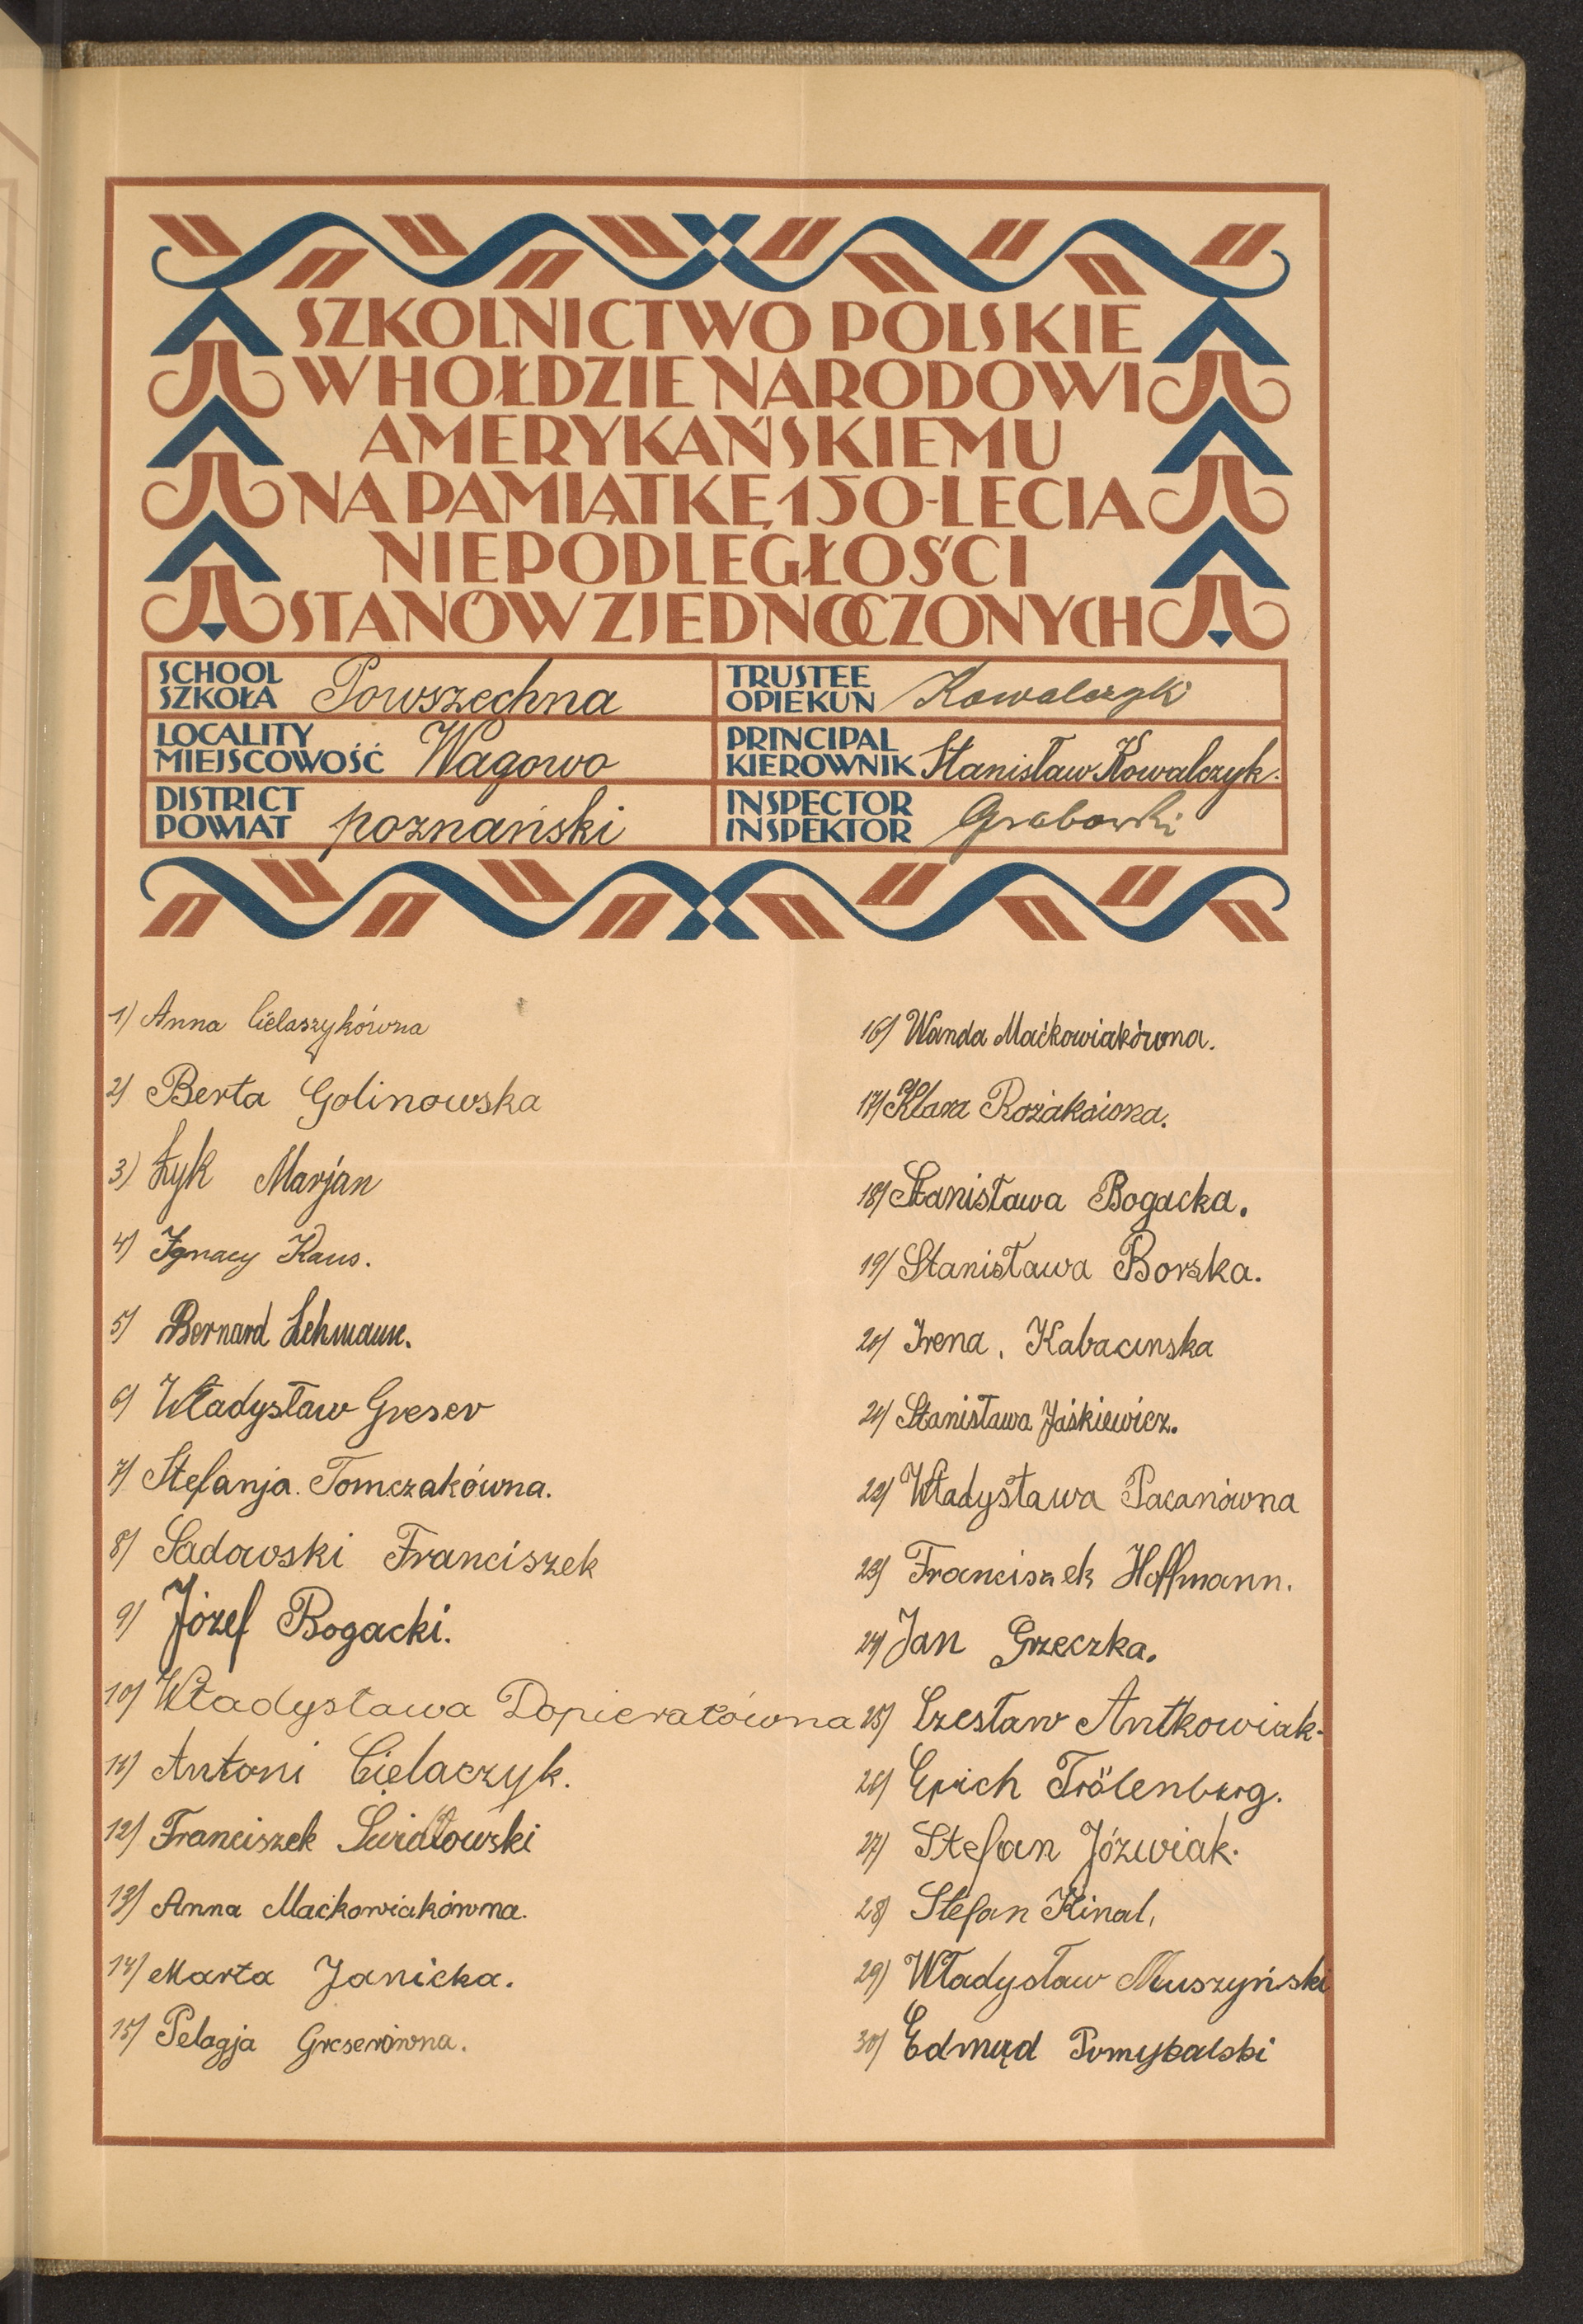 SZKOLNICTWO POLSKIE
W HOŁDZIE NARODOWI
AMERYKAŃSKIEMU
NA PAMIĄTKĘ 150-LECIA
NIEPODLEGŁOŚCI
STANÓW ZJEDNOCZONYCH
SCHOOL
SZKOŁA Powszechna
TRUSTEE
OPIEKUN Kowalczyk
LOCALITY
MIEJSCOWOŚĆ Wagowo
PRINCIPAL
KIEROWNIK Stanisław Kowalczyk.
DISTRICT
POWIAT poznański
INSPECTOR
INSPEKTOR Grabowski
1) Anna Cielaszykówna
2) Berta Golinowska
3) Łyk Marjan
4) Ignacy Kaus.
5) Bernard Lehmann.
6) Władysław Greser
7) Stefanja Tomczakówna.
8) Sadowski Franciszek
9) Józef Bogacki.
10) Władysława Dopierałówna
11) Antoni Cielaczyk.
12) Franciszek
13) Anna Maćkowiakówna.
14) Marta Janicka.
15) Pelagja Greserówna.
16) Wanda Maćkowiakówna.
17) Klara
18) Stanisława Bogacka.
19) Stanisława Borska.
20) Irena. Kabacinska
21) Stanisława Jaśkiewicz.
22) Władysława Pacanówna
23) Franciszek Hoffmann.
24) Jan Grzeczka.
25) Czesław Antkowiak.
26) Erich Trölenberg.
27) Stefan Józwiak.
28) Stefan Kinal,
29) Władysław Muszyński
30) Edmund Pomykalski